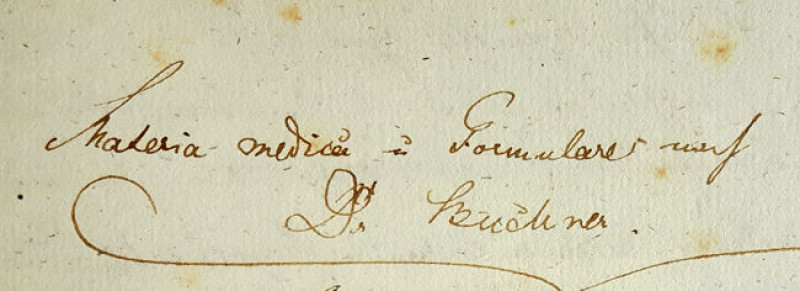 Materia medica u Formulare nach
Dr Büchner.